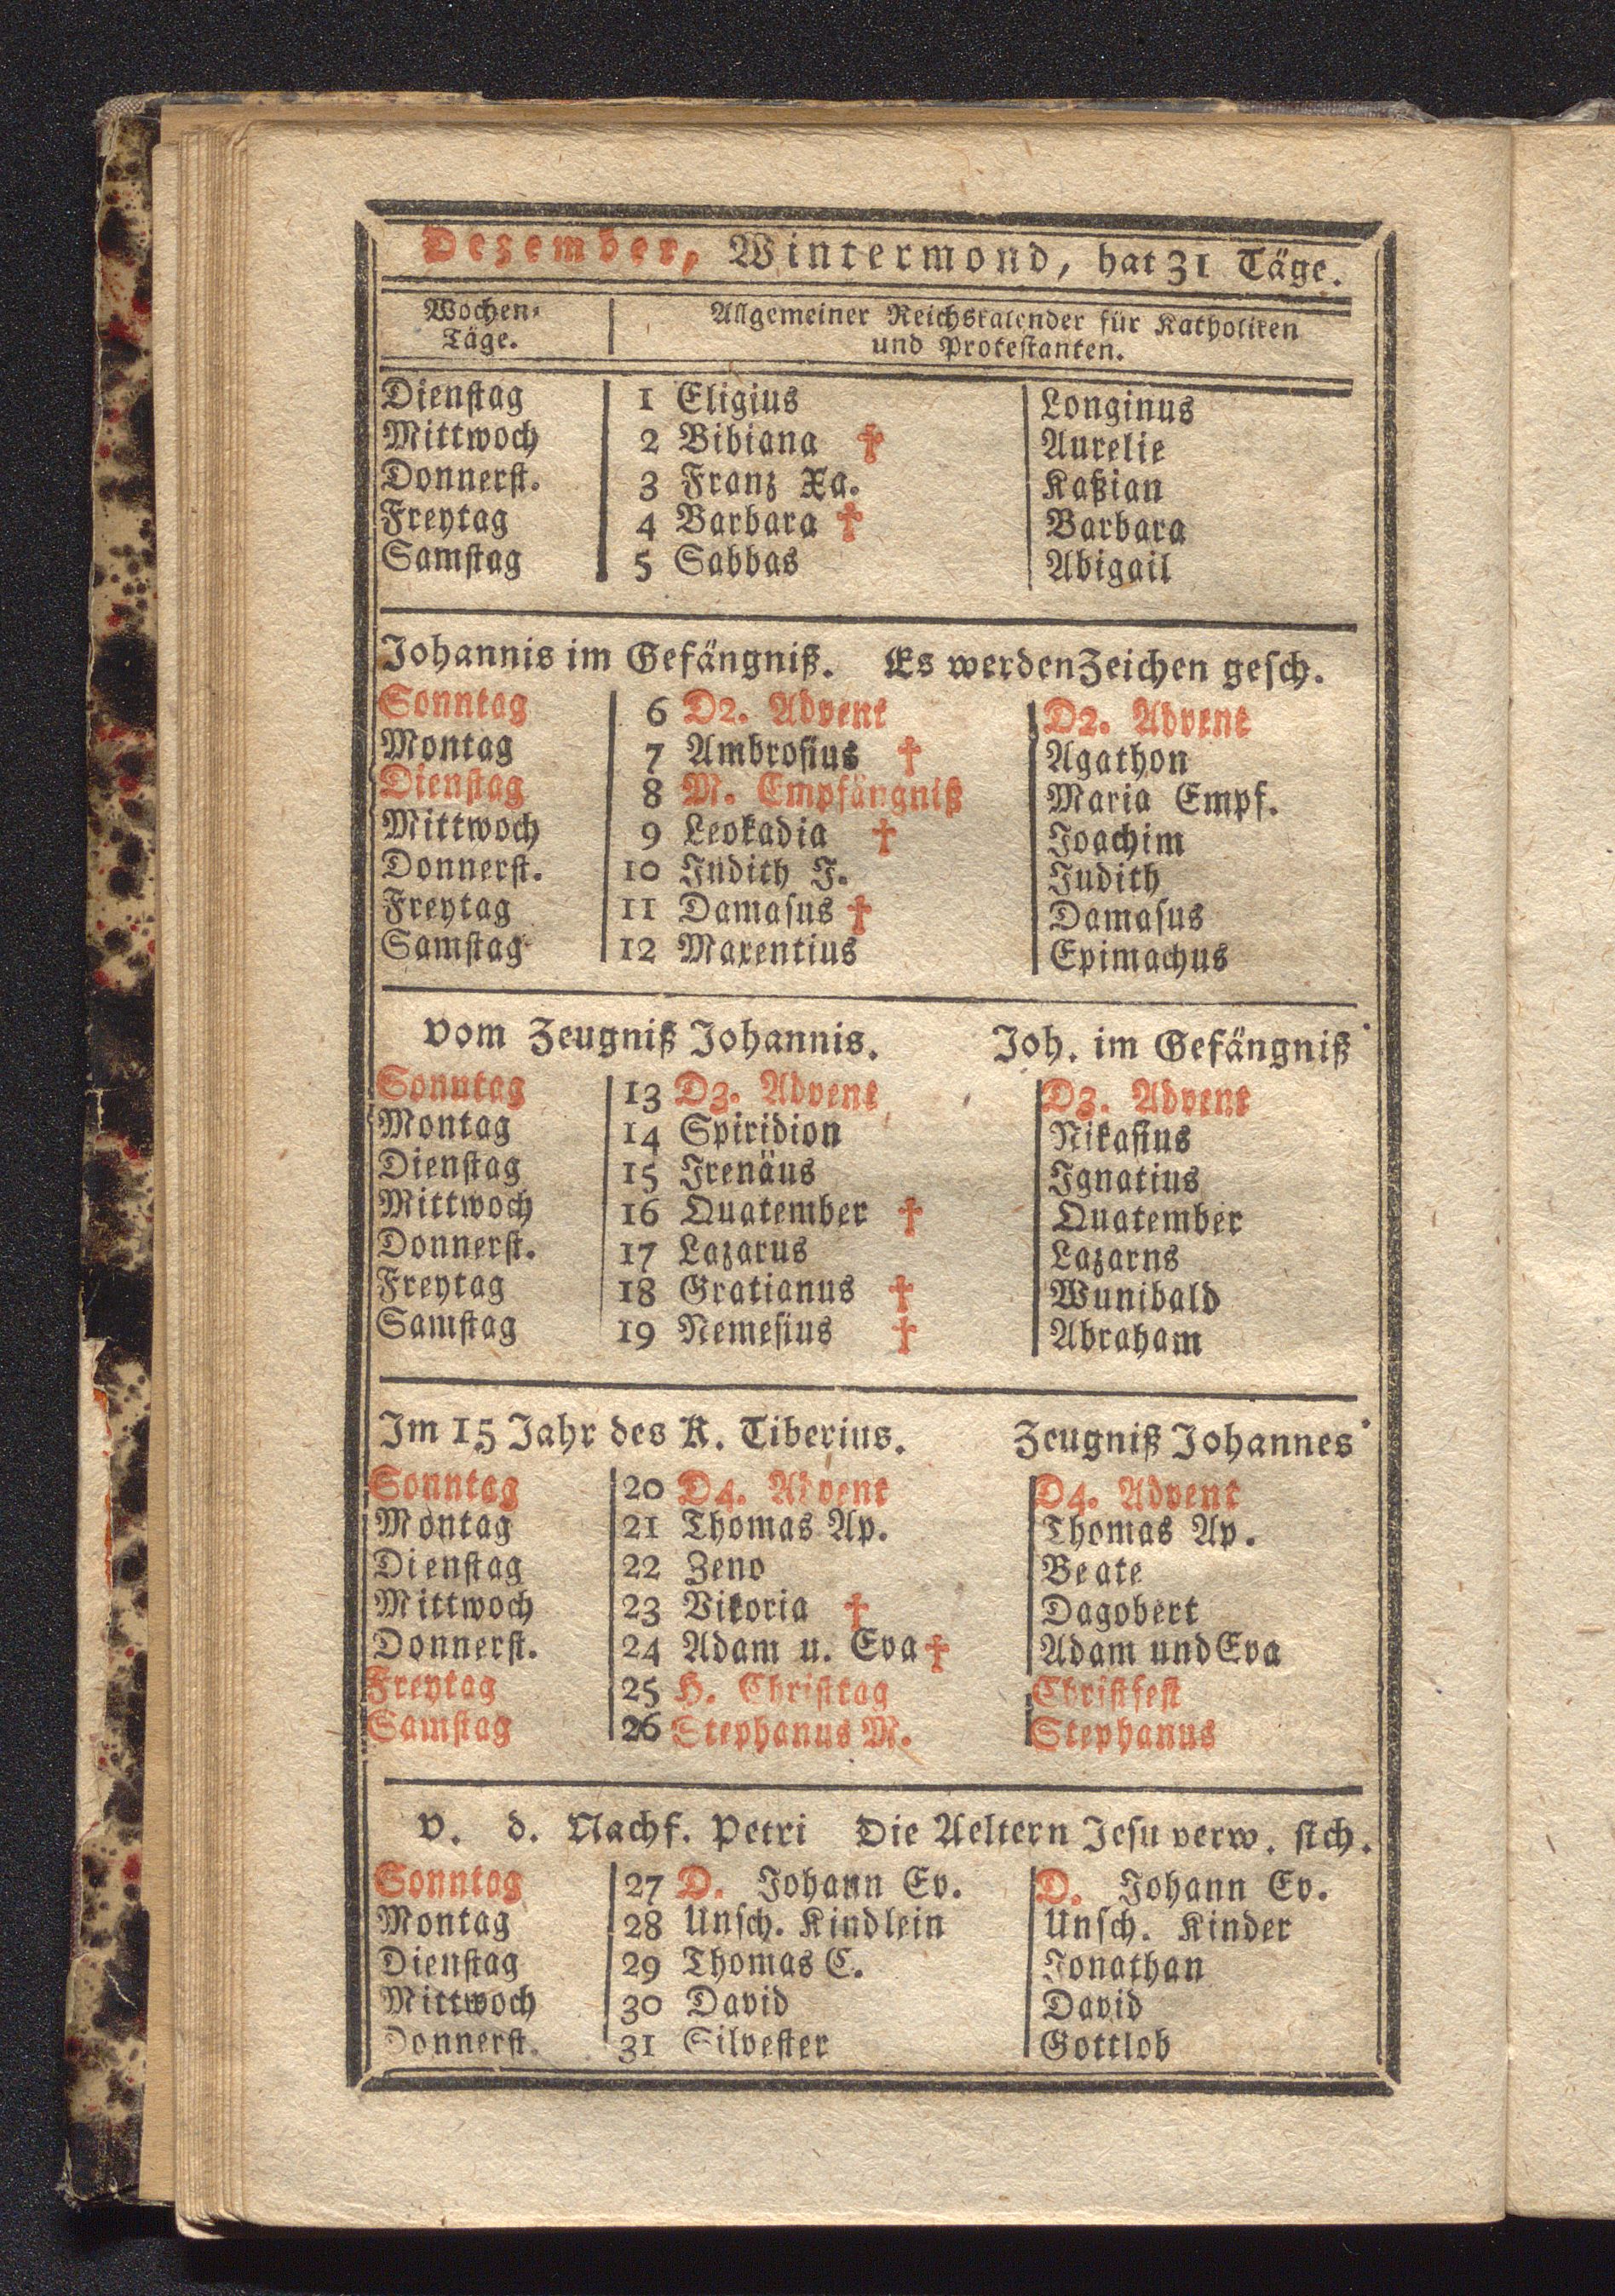 Dezember, Wintermond, hat 31 Täge.
Wochen-
Täge.
Allgemeiner Reichskalender für Katholiken
und Protestanten.
Dienstag 1 Eligius Longinus
Mittwoch 2 Bibiana † Aurelie
Donnerst. 3 Franz Xa. Kaßian
Freytag 4 Barbara † Barbara
Samstag 5 Sabbas Abigail
Johannis im Gefängniß. Es werden Zeichen gesch.
Sonntag 6 D2. Advent D2. Advent
Montag 7 Ambrosius † Agathon
Dienstag 8 M. Empfängniß Maria Empf.
Mittwoch 9 Leokadia † Joachim
Donnerst. 10 Judith J. Judith
Freytag 11 Damasus † Damasus
Samstag 12 Maxentius Epimachus
Vom Zeugniß Johannis. Joh. im Gefängniß.
Sonntag 13 D3. Advent D3. Advent
Montag 14 Spiridion Nikasius
Dienstag 15 Irenäus Ignatius
Mittwoch 16 Quatember † Quatember
Donnerst. 17 Lazarus Lazarns
Freytag 18 Gratianus † Wunibald
Samstag 19 Nemesius † Abraham
Im 15 Jahr des K. Tiberius. Zeugniß Johannes.
Sonntag 20 D4. Advent D4. Advent
Montag 21 Thomas Ap. Thomas Ap.
Dienstag 22 Zeno Beate
Mittwoch 23 Vikoria † Dagobert
Donnerst. 24 Adam u. Eva † Adam und Eva
Freytag 25 H. Christtag Christfest
Samstag 26 Stephanus M. Stephanus
V. d. Nachf. Petri Die Aeltern Jesu verw. sich.
Sonntag 27 D. Johann Ev. D. Johann Ev.
Montag 28 Unsch. Kindlein Unsch. Kinder
Dienstag 29 Thomas C. Jonathan
Mittwoch 30 David David
Donnerst. 31 Silvester Gottlob